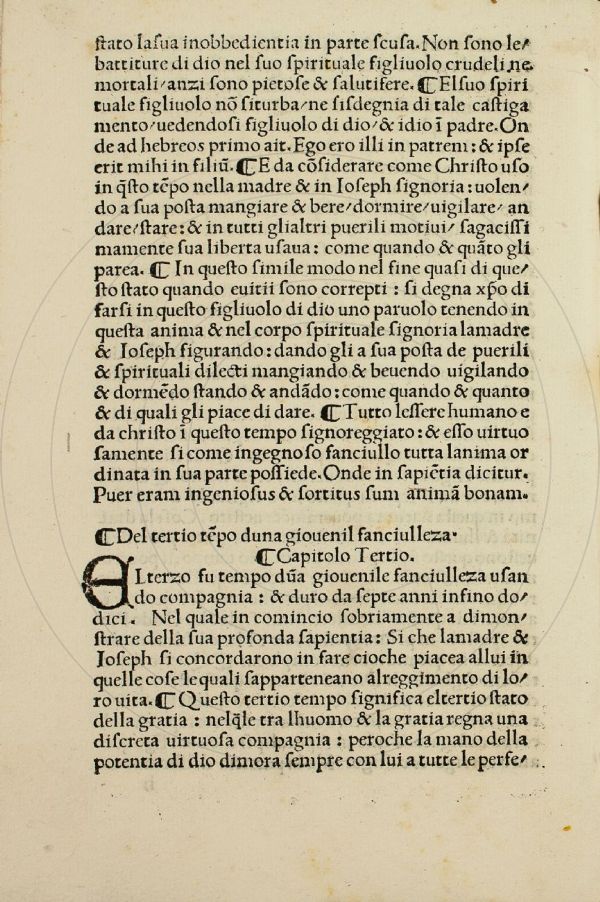 ſtato laſua inobbedientia in parte ſcuſa. Non ſono le/
battiture di dio nel ſuo ſpirituale figliuolo crudeli ne
mortali/anzi ſono pietoſe & ſalutifere. ¶ Elſuo ſpiri
tuale figliuolo nō ſiturba/ne ſiſdegnia di tale caſtiga
mento/uedendoſi figliuolo di dio/& idio ī padre. On
de ad hebreos primo ait. Ego ero illi in patrem: & ipſe
erit mihi in filiū. ¶ E da cōſiderare come Chriſto uſo
in q̄ſto tēpo nella madre & in Ioſeph ſignoria: uolen/
do a ſua poſta mangiare & bere/dormire/uigilare/ an
dare/ſtare: & in tutti glialtri puerili motiui/ ſagaciſſi
mamente ſua liberta uſaua: come quando & quāto gli
parea. ¶ In queſto ſimile modo nel fine quaſi di que/
ſto ſtato quando euitii ſono correpti : ſi degna xp̄o di
farſi in queſto figliuolo di dio uno paruolo tenendo in
queſta anima & nel corpo ſpirituale ſignoria lamadre
& Ioſeph figurando: dando gli a ſua poſta de puerili
& ſpirituali dilecti mangiando & beuendo uigilando
& dormēdo ſtando & andādo: come quando & quanto
& di quali gli piace di dare. ¶ Tutto leſſere humano e
da chriſto ī queſto tempo ſignoreggiato: & eſſo uirtuo
ſamente ſi come ingegnoſo fanciullo tutta lanima or
dinata in ſua parte poſſiede. Onde in ſapiētia dicitur.
Puer eram ingenioſus & ſortitus ſum animā bonam.
¶ Del tertio tēpo duna giouenil fanciulleza.
¶ Capitolo Tertio.
EL terzo fu tempo dūa giouenile fanciulleza uſan/
do compagnia : & duro da ſepte anni infino do/
dici. Nel quale in comincio ſobriamente a dimon/
ſtrare della ſua profonda ſapientia: Si che lamadre &
Ioſeph ſi concordarono in fare cioche piacea allui in
quelle coſe le quali ſapparteneano alreggimento di lo/
ro uita. ¶ Queſto tertio tempo ſignifica eltertio ſtato
della gratia : nelq̄le tra lhuomo & la gratia regna una
diſcreta uirtuoſa compagnia : peroche la mano della
potentia di dio dimora ſempre con lui a tutte le perfe/